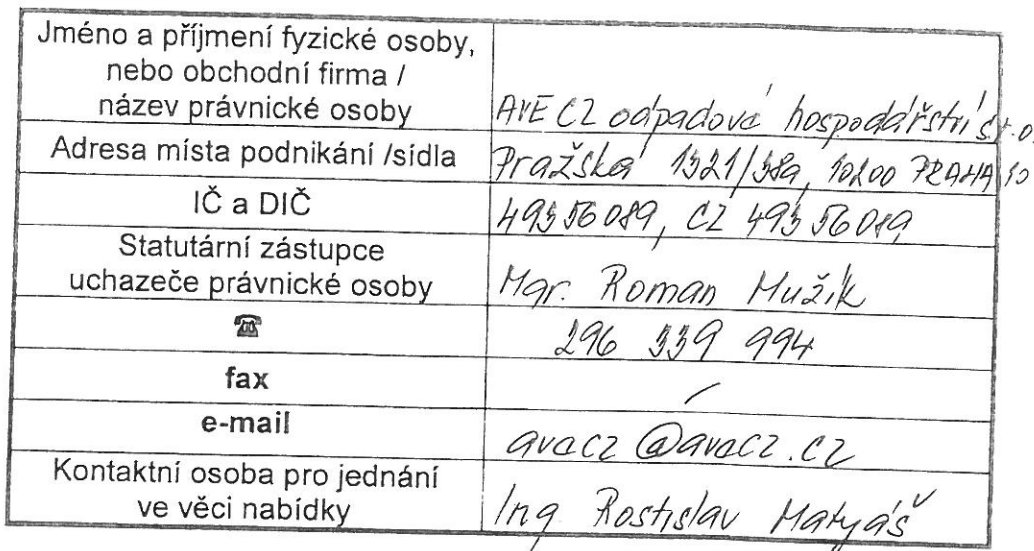 Jméno a příjmení fyzické osoby,
nebo obchodní firma /
název právnické osoby
AVE CZ odpadové hospodářství s.r.o.
Adresa místa podnikání /sídla
Pražská 1321/38a, 10200 PRAHA 10
IČ a DIČ
49356089, CZ 49356089
Statutární zástupce
uchazeče právnické osoby
Mgr. Roman Mužík
☎
296 339 994
fax
/
e-mail
avecz@avecz.cz
Kontaktní osoba pro jednání
ve věci nabídky
Ing Rostislav Matyáš